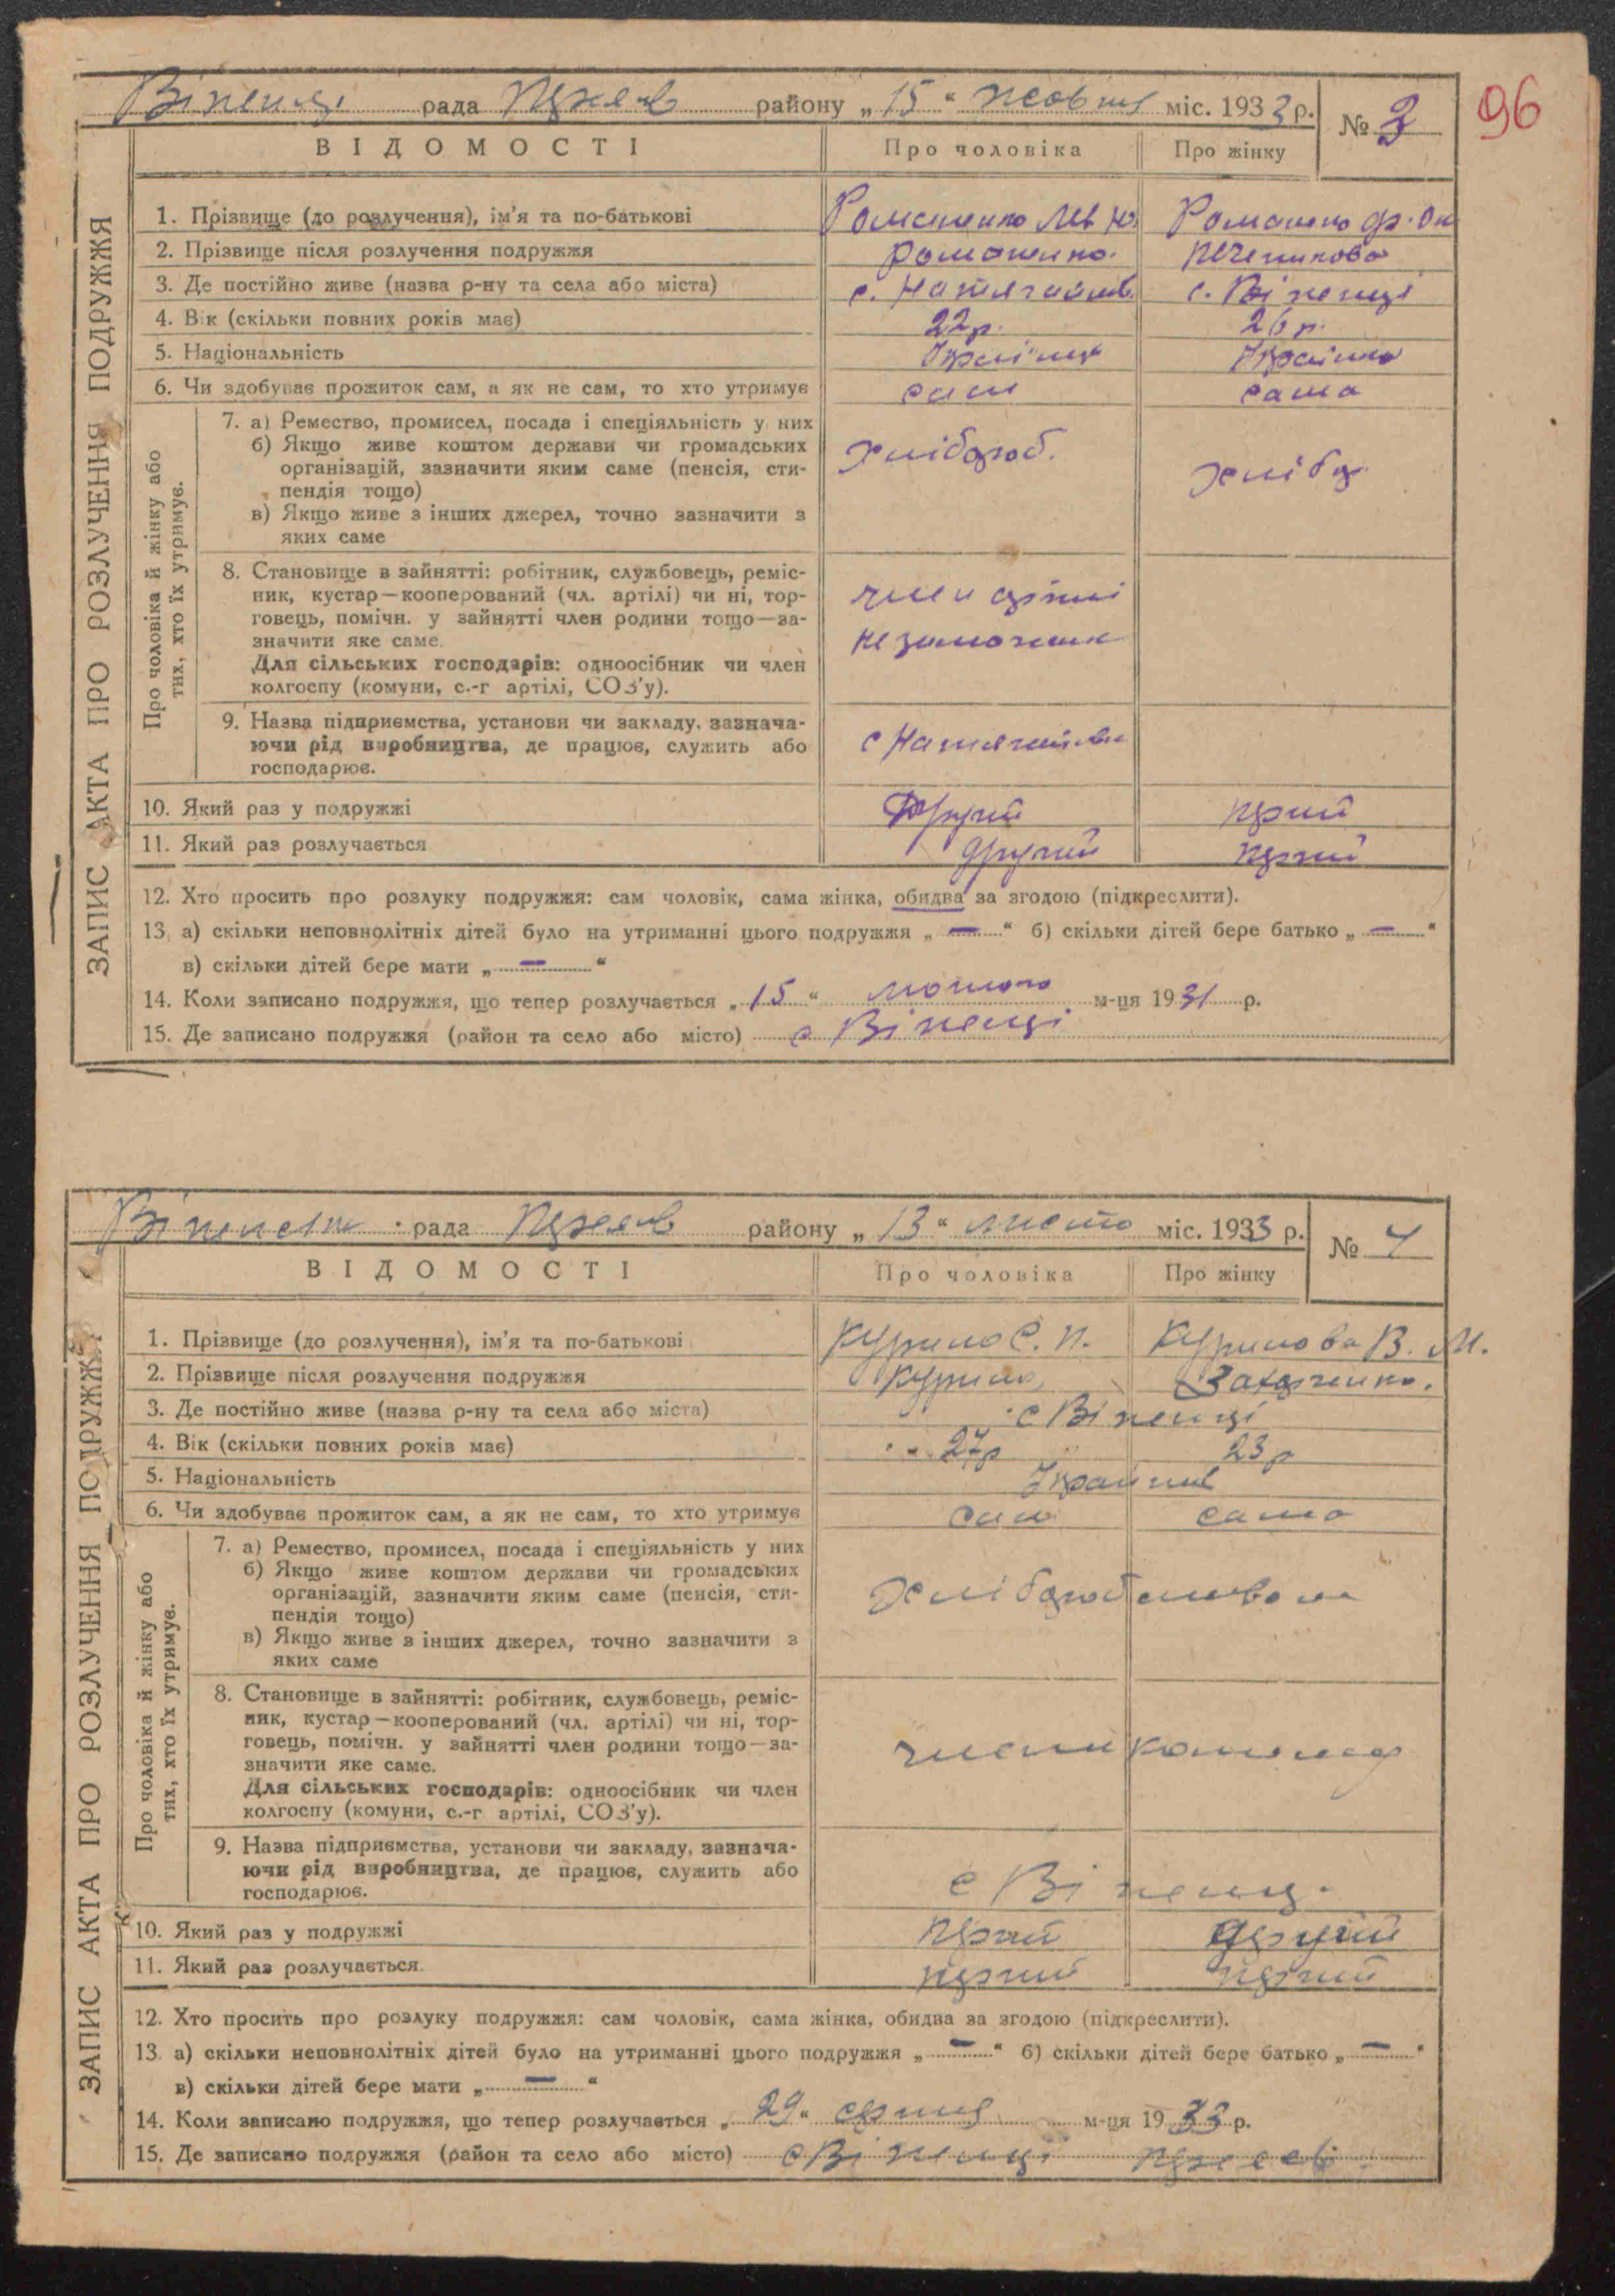 96
Віненці рада району „15“ жовтня міс. 1933 р. № 3
ЗАПИС АКТА ПРО РОЗЛУЧЕННЯ ПОДРУЖЖЯ
ВІДОМОСТІ Про чоловіка Про жінку
1. Прізвище (до розлучення), ім'я та по-батькові Романенко Романенко
2. Прізвище після розлучення подружжя Романенко
3. Де постійно живе (назва р-ну та села або міста) с. с. Віненці
4. Вік (скільки повних років має) 22 р. 26 р.
5. Національність Українець Українка
6. Чи здобуває прожиток сам, а як не сам, то хто утримує сам сама
Про чоловіка й жінку або тих, хто їх утримує.
7. а) Ремество, промисел, посада і спеціяльність у них
б) Якщо живе коштом держави чи громадських
організацій, зазначити яким саме (пенсія, сти-
пендія тощо)
в) Якщо живе з інших джерел, точно зазначити з
яких саме
Хлібороб.
8. Становище в зайнятті: робітник, службовець, реміс-
ник, кустар—кооперований (чл. артілі) чи ні, тор-
говець, помічн. у зайнятті член родини тощо—за-
значити яке саме.
Для сільських господарів: одноосібник чи член
колгоспу (комуни, с.-г артілі, СОЗ'у).
член артілі
незаможник
9. Назва підприємства, установи чи закладу, зазнача-
ючи рід виробництва, де працює, служить або
господарює.
10. Який раз у подружжі Другий
11. Який раз розлучається другий
12. Хто просить про розлуку подружжя: сам чоловік, сама жінка, обидва за згодою (підкреслити).
13. а) скільки неповнолітніх дітей було на утриманні цього подружжя „—“ б) скільки дітей бере батько „—“
в) скільки дітей бере мати „—“
14. Коли записано подружжя, що тепер розлучається „15“ лютого м-ця 1931 р.
15. Де записано подружжя (район та село або місто) с Віненці
рада району „13“ листо міс. 1933 р. № 4
ЗАПИС АКТА ПРО РОЗЛУЧЕННЯ ПОДРУЖЖЯ
ВІДОМОСТІ Про чоловіка Про жінку
1. Прізвище (до розлучення), ім'я та по-батькові Курило С. П. Курилова В. М.
2. Прізвище після розлучення подружжя Курило Захарченко.
3. Де постійно живе (назва р-ну та села або міста) с Віненці
4. Вік (скільки повних років має) 27 р 23 р
5. Національність
6. Чи здобуває прожиток сам, а як не сам, то хто утримує сам сама
Про чоловіка й жінку або тих, хто їх утримує.
7. а) Ремество, промисел, посада і спеціяльність у них
б) Якщо живе коштом держави чи громадських
організацій, зазначити яким саме (пенсія, сти-
пендія тощо)
в) Якщо живе з інших джерел, точно зазначити з
яких саме
8. Становище в зайнятті: робітник, службовець, реміс-
ник, кустар—кооперований (чл. артілі) чи ні, тор-
говець, помічн. у зайнятті член родини тощо—за-
значити яке саме.
Для сільських господарів: одноосібник чи член
колгоспу (комуни, с.-г артілі, СОЗ'у).
9. Назва підприємства, установи чи закладу, зазнача-
ючи рід виробництва, де працює, служить або
господарює.
с Віненц.
10. Який раз у подружжі другий
11. Який раз розлучається.
12. Хто просить про розлуку подружжя: сам чоловік, сама жінка, обидва за згодою (підкреслити).
13. а) скільки неповнолітніх дітей було на утриманні цього подружжя „—“ б) скільки дітей бере батько „—“
в) скільки дітей бере мати „—“
14. Коли записано подружжя, що тепер розлучається „29“ серпня м-ця 1933 р.
15. Де записано подружжя (район та село або місто) с Віненці